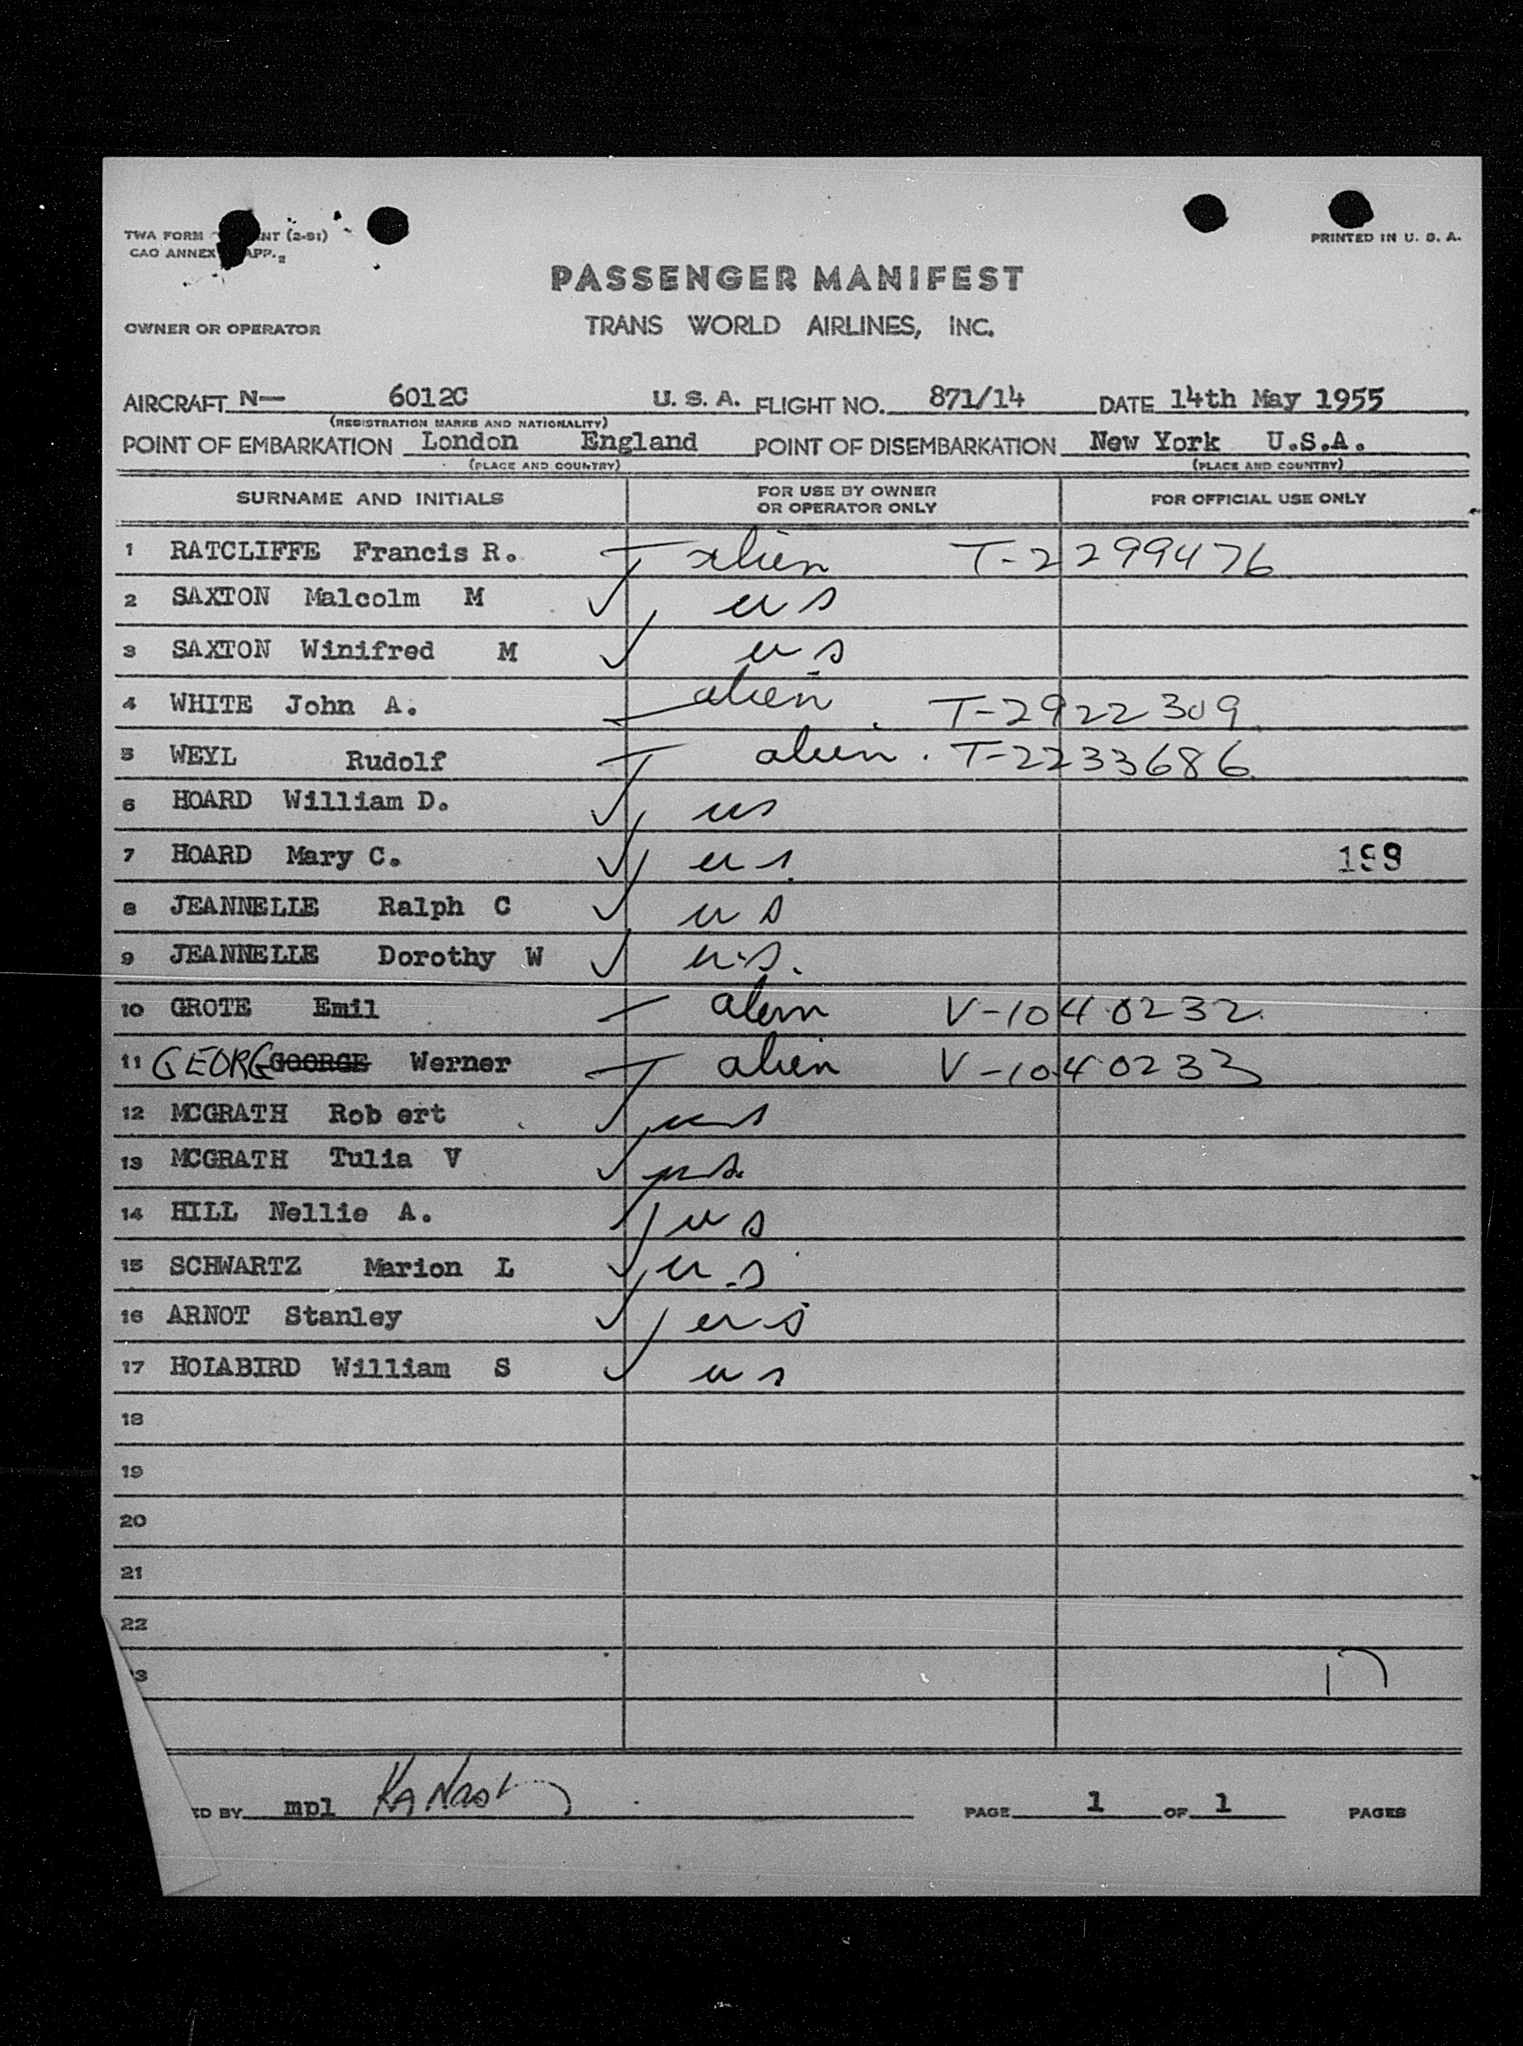 TWA FORM NT (2-51)
CAO ANNEX APP. 2
PRINTED IN U. S. A.
PASSENGER MANIFEST
OWNER OR OPERATOR TRANS WORLD AIRLINES, INC.
AIRCRAFT N— 6012C U. S. A. FLIGHT NO. 871/14 DATE 14th May 1955
(REGISTRATION MARKS AND NATIONALITY)
POINT OF EMBARKATION London England POINT OF DISEMBARKATION New York U.S.A.
(PLACE AND COUNTRY) (PLACE AND COUNTRY)
SURNAME AND INITIALS FOR USE BY OWNER OR OPERATOR ONLY FOR OFFICIAL USE ONLY
1 RATCLIFFE Francis R. alien T-2299476
2 SAXTON Malcolm M ✓ us
3 SAXTON Winifred M ✓ us
4 WHITE John A. alien T-2922309
5 WEYL Rudolf alien. T-2233686
6 HOARD William D. ✓ us
7 HOARD Mary C. ✓ us. 199
8 JEANNELLE Ralph C ✓ us
9 JEANNELLE Dorothy W ✓ u.s.
10 GROTE Emil alien V-1040232
11 GEORG GOORGE Werner alien V-1040233
12 MCGRATH Rob ert ✓ us
13 MCGRATH Tulia V ✓ us.
14 HILL Nellie A. ✓ us
15 SCHWARTZ Marion L ✓ u.s
16 ARNOT Stanley ✓ us
17 HOLABIRD William S ✓ us
18
19
20
21
22
3
17
ED BY mpl PAGE 1 OF 1 PAGES